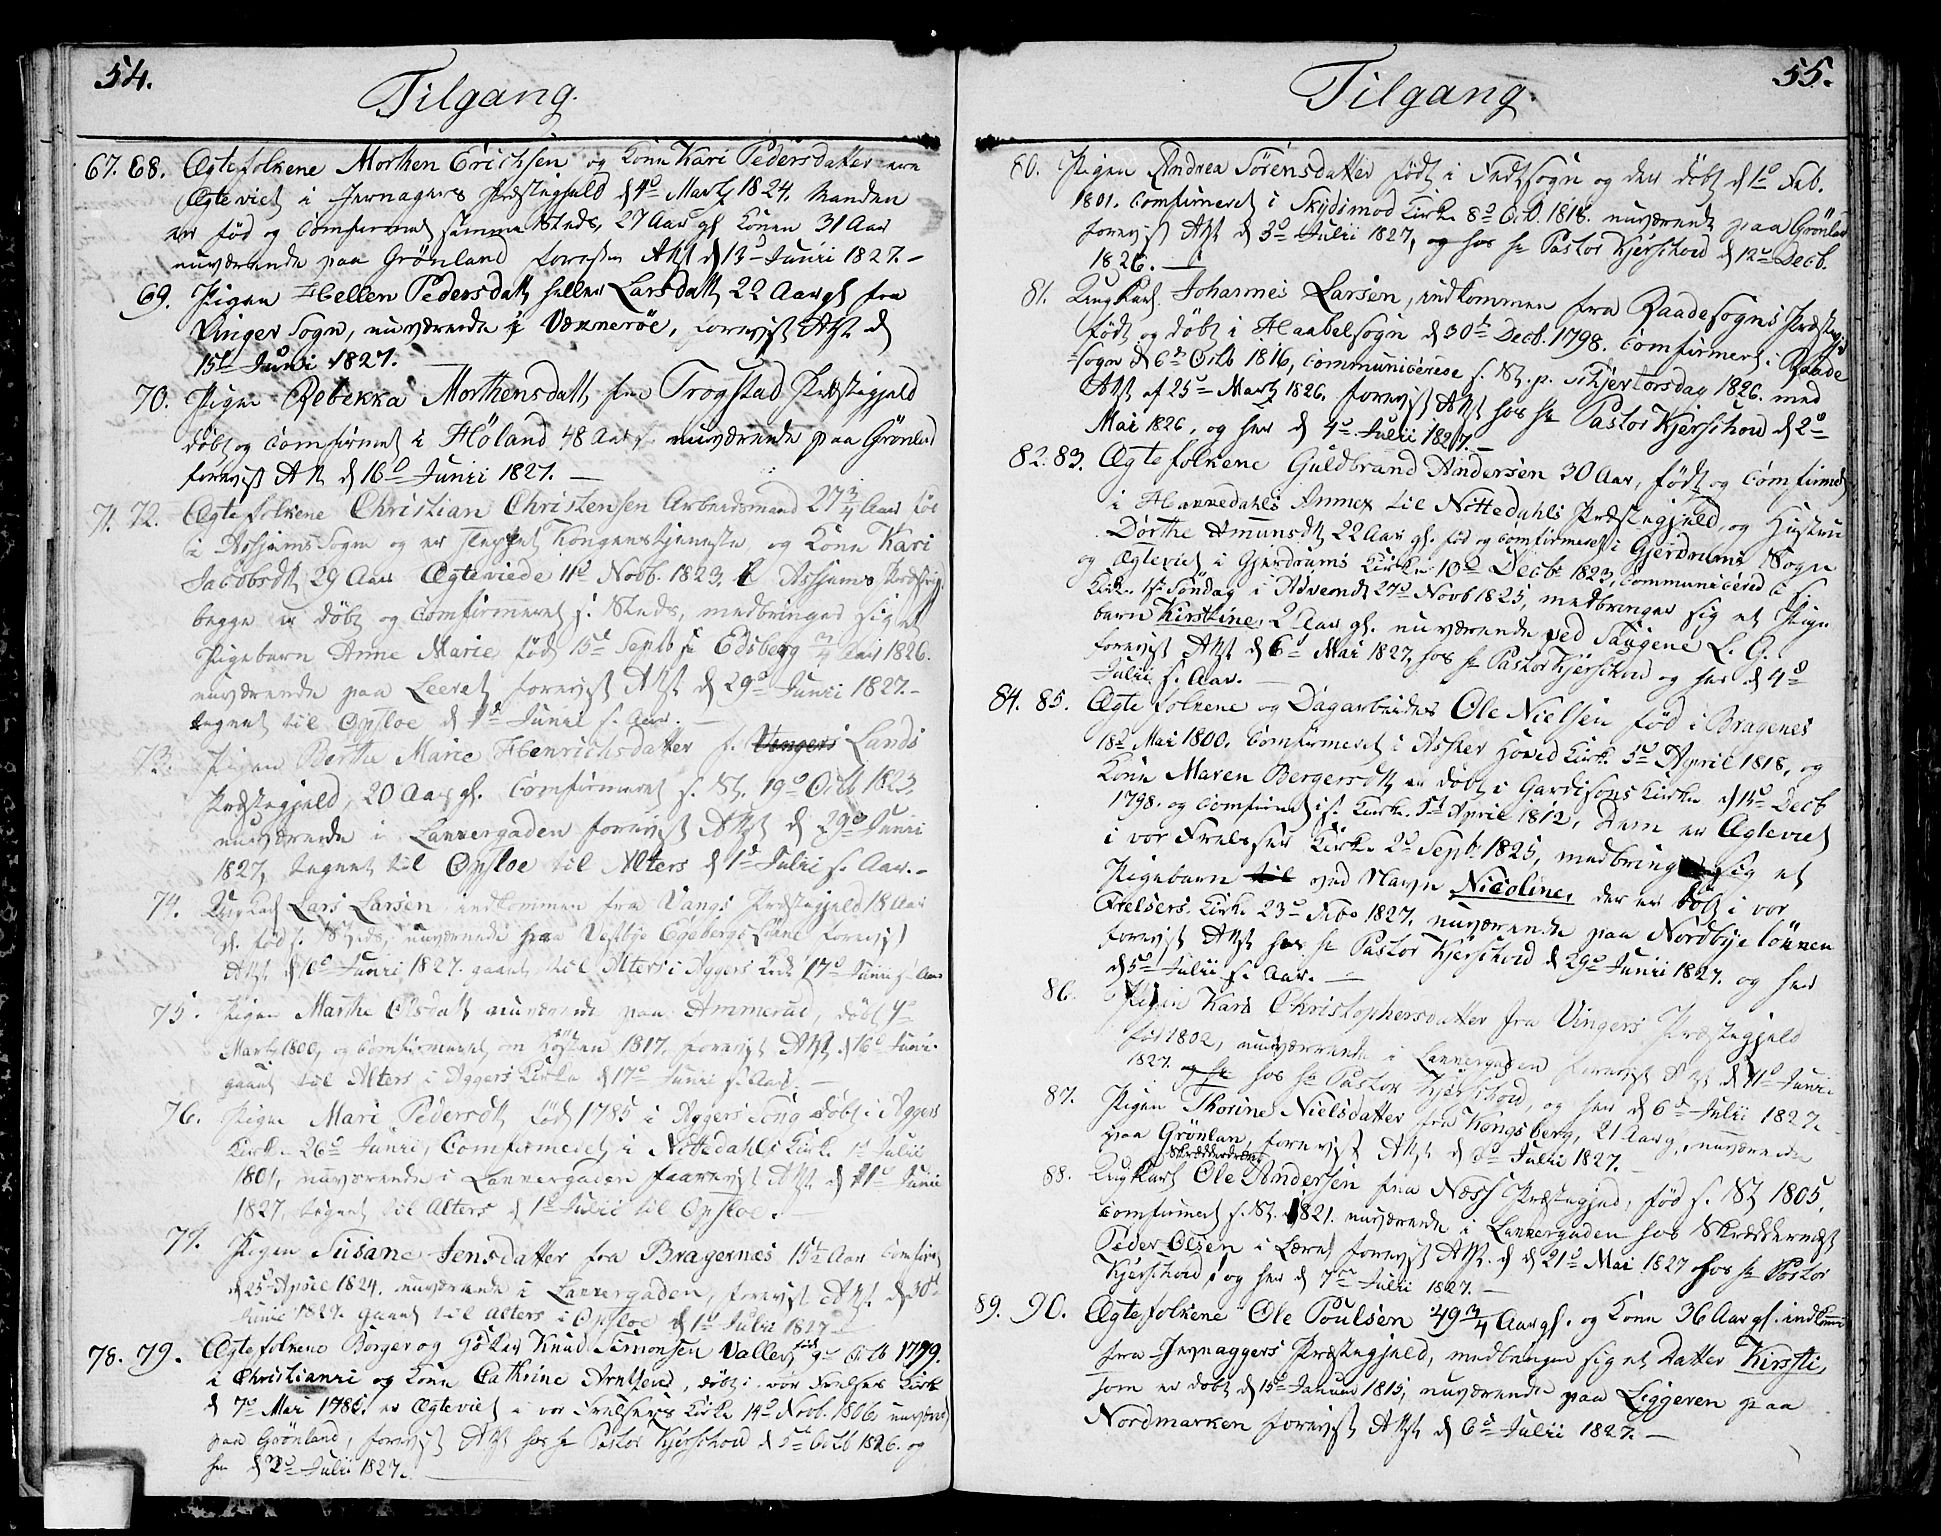 54.
Tilgang.
67. 68. Ægtefolkene Morthen Erichsen og Kone Kari Pedersdatter ere
Ægteviet i Jevnagers Præstegjeld d 4d Martz 1824. Manden
er fød og Comfirmet samme Steds, 27 Aar gl Konen 31 Aar
nuværende paa Grönland foreviist Attst d 13d Junii 1827.-
69. Pigen Hellen Pedersdatt heller Larsdatt 22 Aar gl fra
Vinger Sogn, nuværende i Vænnerøe, foreviist Attst d
15de Junii 1827.
70. Pigen Rebekka Morthensdatt, fra Trogstad Præstegjeld
döbt og Comfirmet i Höland 48 Aar g. nuværende paa Grönland
foreviist Attst d 16d Junii 1827. —
71. 72. Ægtefolkene Christian Christensen Arbeidsmand 27 3/4 Aar fød
i Asschims Sogn og er Kongens tjeneste, og Kone Kari
Jacobsdtt 29 Aar Ægteviede 11d Novb. 1823. i Asschims Præstegj.
begge er döbt og Comfirmeret s. Steds, medbringer sig et
Pigebarn Anne Marie født 15d Septb fr Edsberg 3/4 Aar 1826.
nuværende paa Leeret foreviist Attst d 29d Junii 1827.-
tegnet til Opsloe d 1d Junii s. Aar. —
73. Pigen Berthe Marie Henrichsdatter f. Vingers Lands
Præstegjeld, 20 Aar gl. Comfirmeret s. St. 19d Octb 1823.
nuværende i Lannergaden foreviist Attst d 29d Junii
1827, tegnet til Opsloe til Alters d 1d Julii s. Aar.-
74. Ungkarl Lars Larsen indkommen fra Vangs Præstegjeld 18 Aar
gl. fød s. Steds, nuværende paa Vestbye Egebergs Lönne foreviist
Attst d Junii 1827. gaaet til Alters i Aggers Kirke 17d Junii s. Aar
75. Pigen Marthe Olsdatt nuværende paa Ammerud, födt 4d
Martz 1800, og Comfirmeret om Hösten 1817. foreviist Attst d 16d Junii.
gaaet til Alters i Aggers Kirke d 17d Junii s. Aar. —
76. Pigen Mari Pedersdtt, fød 1785 i Aggers Sogn döbt i Aggers
Kirke 26d Junii, Comfirmeret i Nittedahls Kirke 1d Julii
1801, nuværende i Lannergaden foreviist Attst d 21d Junii
1827, tegnet til Alters d 1d Julii til Opsloe. —
77. Pigen Susane Jensdatter fra Bragernes 15½ Aar Comfiret
d 25d April 1824. nuværende i Lannergaden, foreviist Attst d 30d
Junii 1827. gaaet til Alters i Opsloe d 1d Julii 1827
78. 79. Ægtefolkene Borger og Höker Knud Simonsen Valler, fød 9d Octb 1799.
i Christiania og Kone Cathrine Arntsen, döbt i vor Frelsers Kirke
d 7d Mai 1786, er Ægteviet i vor Frelsers Kirke 14d Novb. 1806 nuværende
paa Grönland, foreviist Attst hos Hr Pastor Kjerschow d 5d Octb 1826. og
her d 2d Julii 1827. —
55.
Tilgang.
80. Pigen Andrea Sörensdatter födt i Fedt Sogn og der döbt d 1d Feb.
1801. Comfirmeret i Skydsmod Kirke 8d Octb. 1818. nuværende paa Grönland
foreviist Attst d 3d Julii 1827, og hos Hr Pastor Kjerschow d 12d Decb.
1826. —
81. Ungkarl. Johannes Larsen, indkommen fra Raade Sogns Præstegjeld
födt og döbt i Haabel Sogn d 30te Decb. 1798. Comfirmeret i Raade
Sogn d 6d Octb 1816, Communicerede s. St. p. Skjertorsdag 1826. med
Attst af 25d Martz 1826. foreviist Attst hos Hr Pastor Kjerschow d 2d
Mai 1826, og her d 4d Julii 1827. —
82. 83. Ægtefolkene Guldbrand Andersen 30 Aar, födt og Comfirmeret
i Hannedahls Annex til Nittedahls Præstegjeld, og Hustrue
Dorthe Amunsdt 22 Aar gl. fød og Comfirmeret i Gjerdrums Sogn
og Ægteviet i Gjerdrums Kirke 10d Decbr 1823, Communicered i s.
Kirke 1st Söndag i Advent d 27d Novb 1825, medbringer sig et Pige
barn Kirstine, 2 Aar gl. nuværende ved Saugene L. G.
foreviist Attst d 6d Mai 1827, hos Hr Pastor Kjerschow og her d 4d
Julii s. Aar. —
84. 85. Ægtefolkene og Dagarbeider Ole Nielsen fød i Bragenes
18d Mai 1800. Comfirmeret i Asker Hoved Kirke 5d April 1818, og
Kone Maren Bergersdtt er döbt i Gardisons Kirke d 15d Decb
1798. og Comfirmet i s. Kirke 5d April 1812, Dem er Ægteviet
i vor Frelsser Kirke 2d Sept. 1825, medbringer sig et
Pigebarn til ved Navn Nicoline, der er döbt i vor
Frelsers Kirke 23d Feb. 1827. nuværende paa Nordbye lönnen
foreviist Attst hos Hr Pastor Kjerschow d 29d Junii 1827. og her
d 5d Julii s. Aar. —
86. Pigen Kari Christophersdatter fra Vingers Præstegjeld
fød 1802, nuværende i Lannergaden foreviist Attst d 11d Junii
1827. og hr hos Hr Pastor Kjerschow, og her d 6d Julii 1827.
87. Pigen Thorine Nielsdatter fra Kongsberg, 21 Aar g, nuværende
paa Grönlan, foreviist Attst d 6d Julii 1827. —
88. Ungkarl Skreddersvend Ole Andersen fra Næss Præstegjed, fød s. St 1805,
Comfirmeret s. St. 1821. nuværende i Lannergaden hos Skreddermest
Peder Olsen i Lære foreviist Attst. d 21d Mai 1827 hos Hr Pastor
Kjerschow, og her d 7d Julii 1827. —
89. 90. Ægtefolkene Ole Poulsen 49 3/4 Aar gl. og Kone 36 Aar gl. indkomn
fra Jevnaggers Præstegjeld, medbringer sig et Datter Kirsti,
som er döbt d 15d Januar 1815, nuværende paa Liggeren paa
Nordmarken foreviist Attst d 6d Julii 1827. —